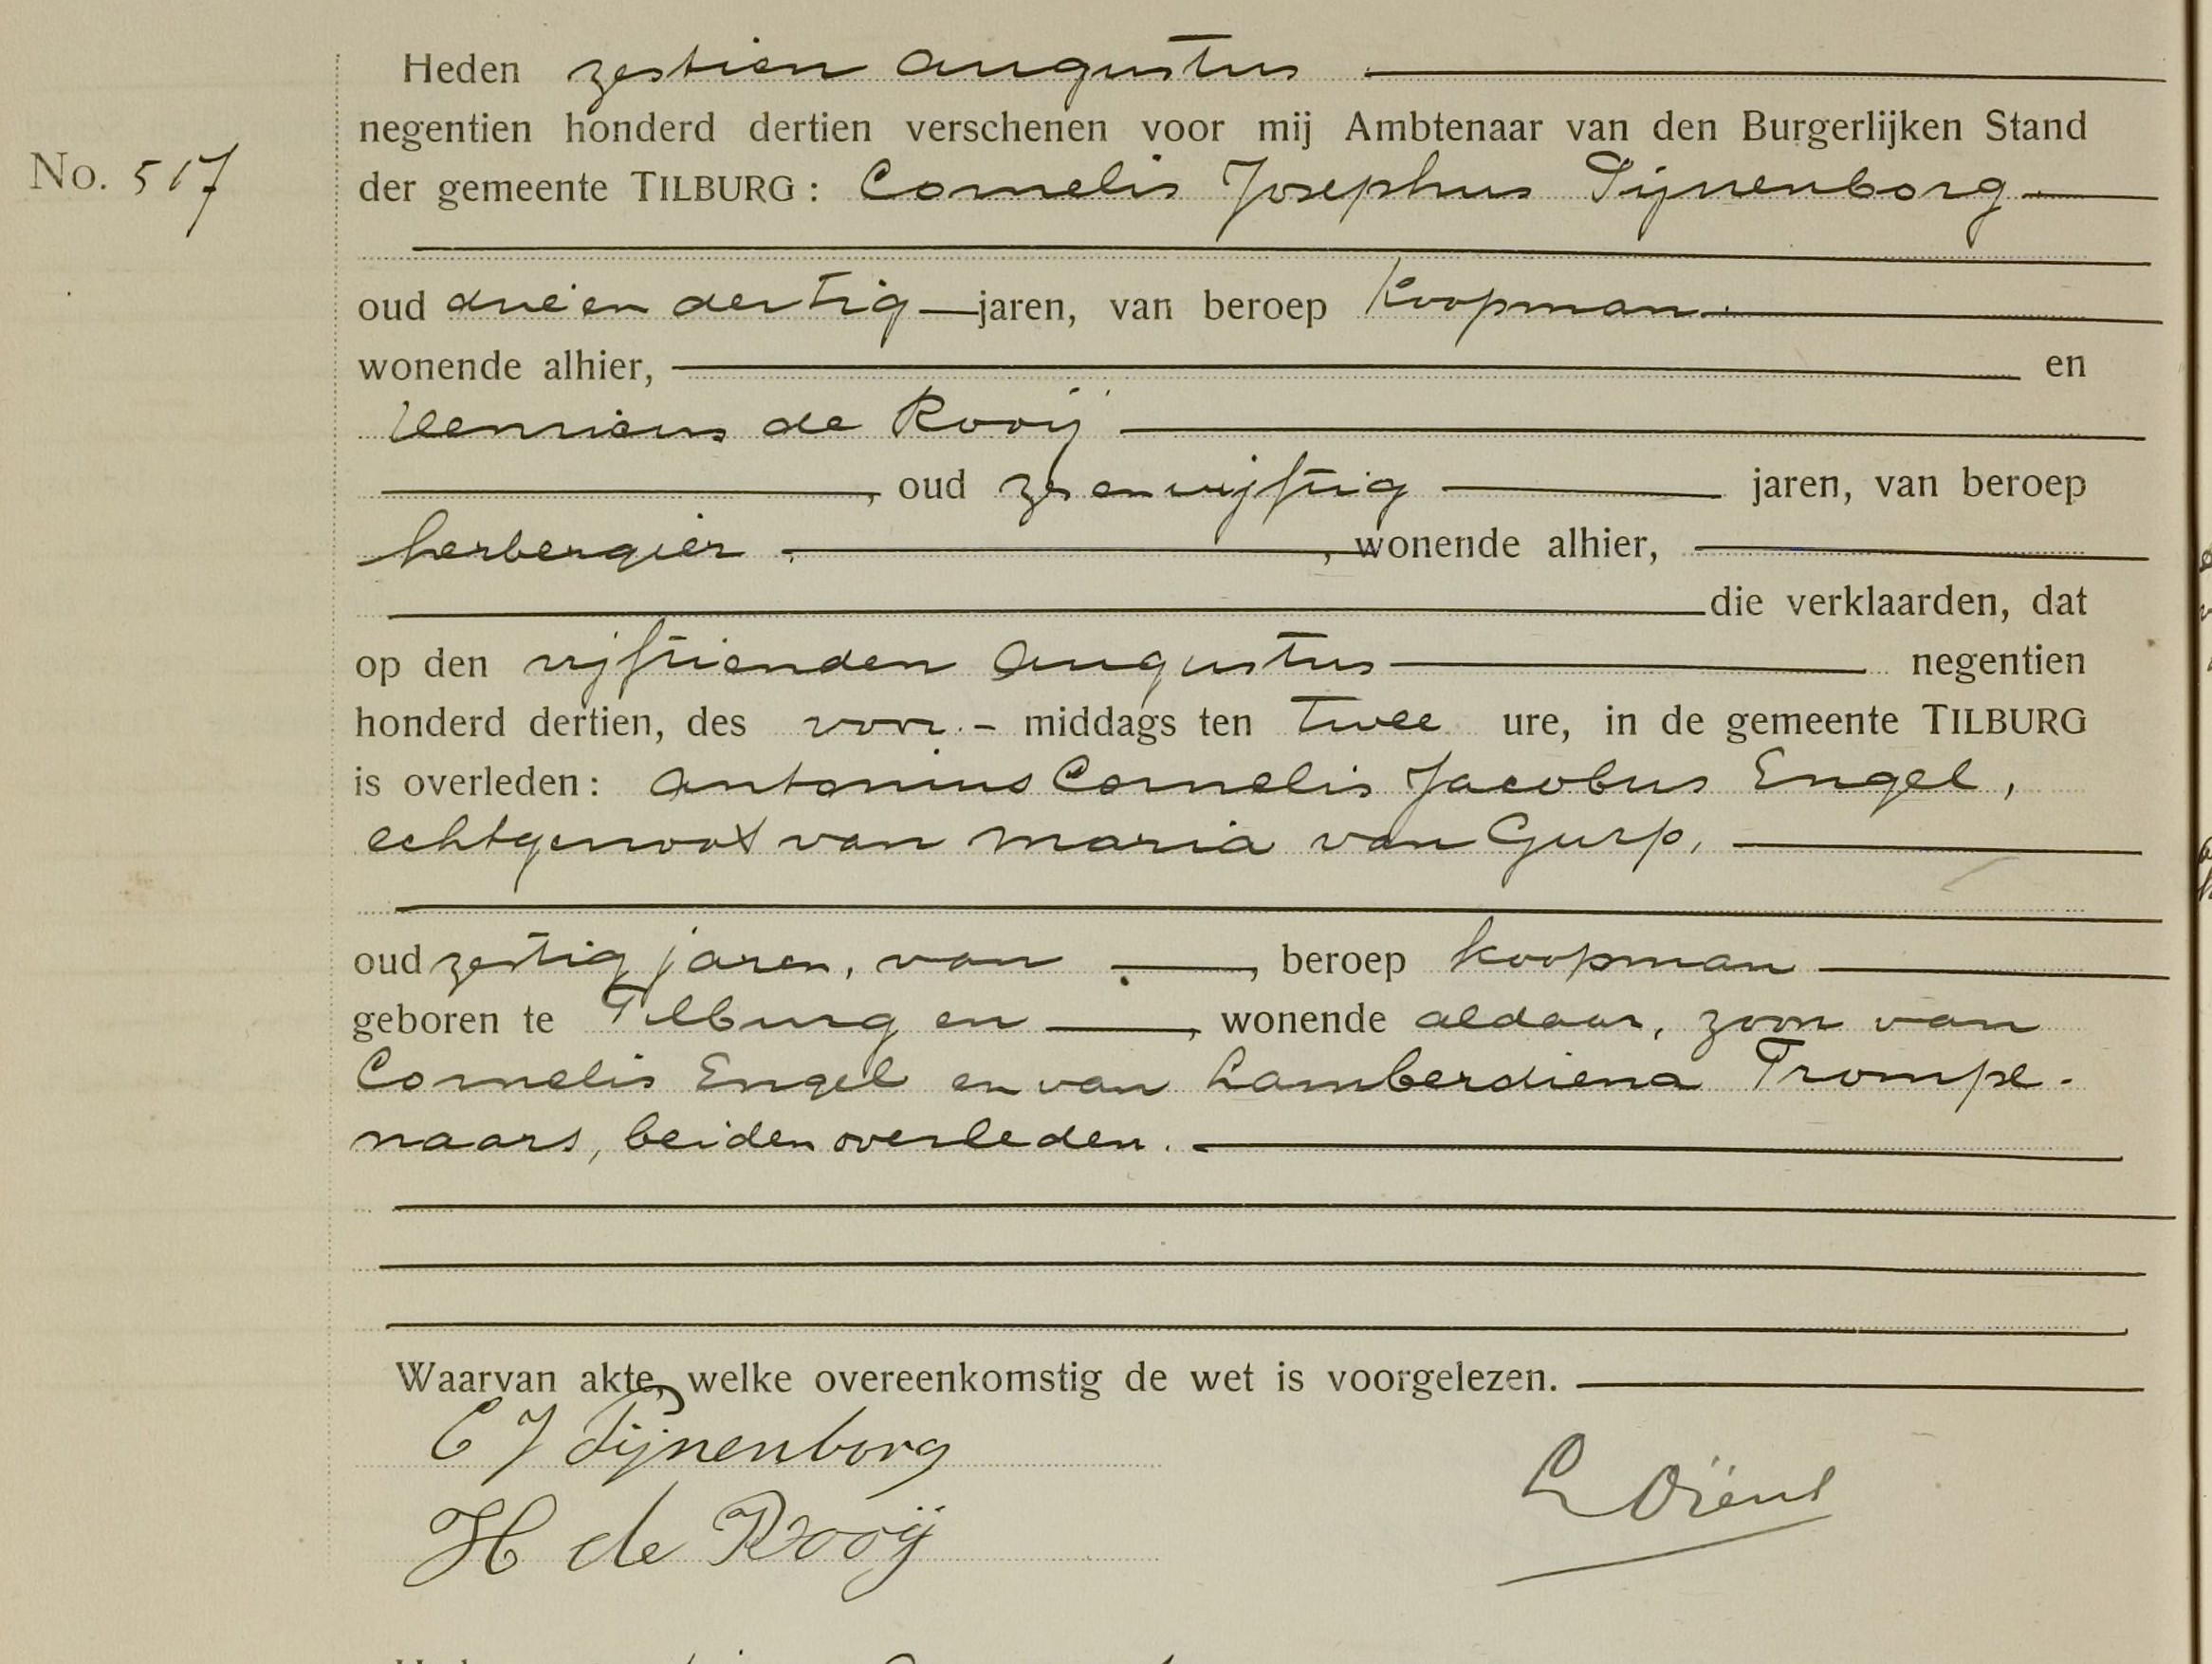 Heden zestien augustus
negentien honderd dertien verschenen voor mij Ambtenaar van den Burgerlijken Stand
No. 517
der gemeente TILBURG: Cornelis Josephus Tijnenborg
oud drieen dertig jaren, van beroep koopman
wonende alhier, en
Henricus de Rooij
, oud zes en vijftig jaren, van beroep
herbergier, wonende alhier,
die verklaarden, dat
op den vijftienden augustus negentien
honderd dertien, des voor - middags ten twee ure, in de gemeente TILBURG
is overleden: Antonius Cornelis Jacobus Engel,
echtgenoot van Maria van Gurp,
oud zestig jaren, van , beroep koopman
geboren te Tilburg en , wonende aldaar, zoon van
Cornelis Engel en van Lamberdiena Trompe-
naars, beiden overleden.
Waarvan akte, welke overeenkomstig de wet is voorgelezen.
C J Tijnenborg
H de Rooij